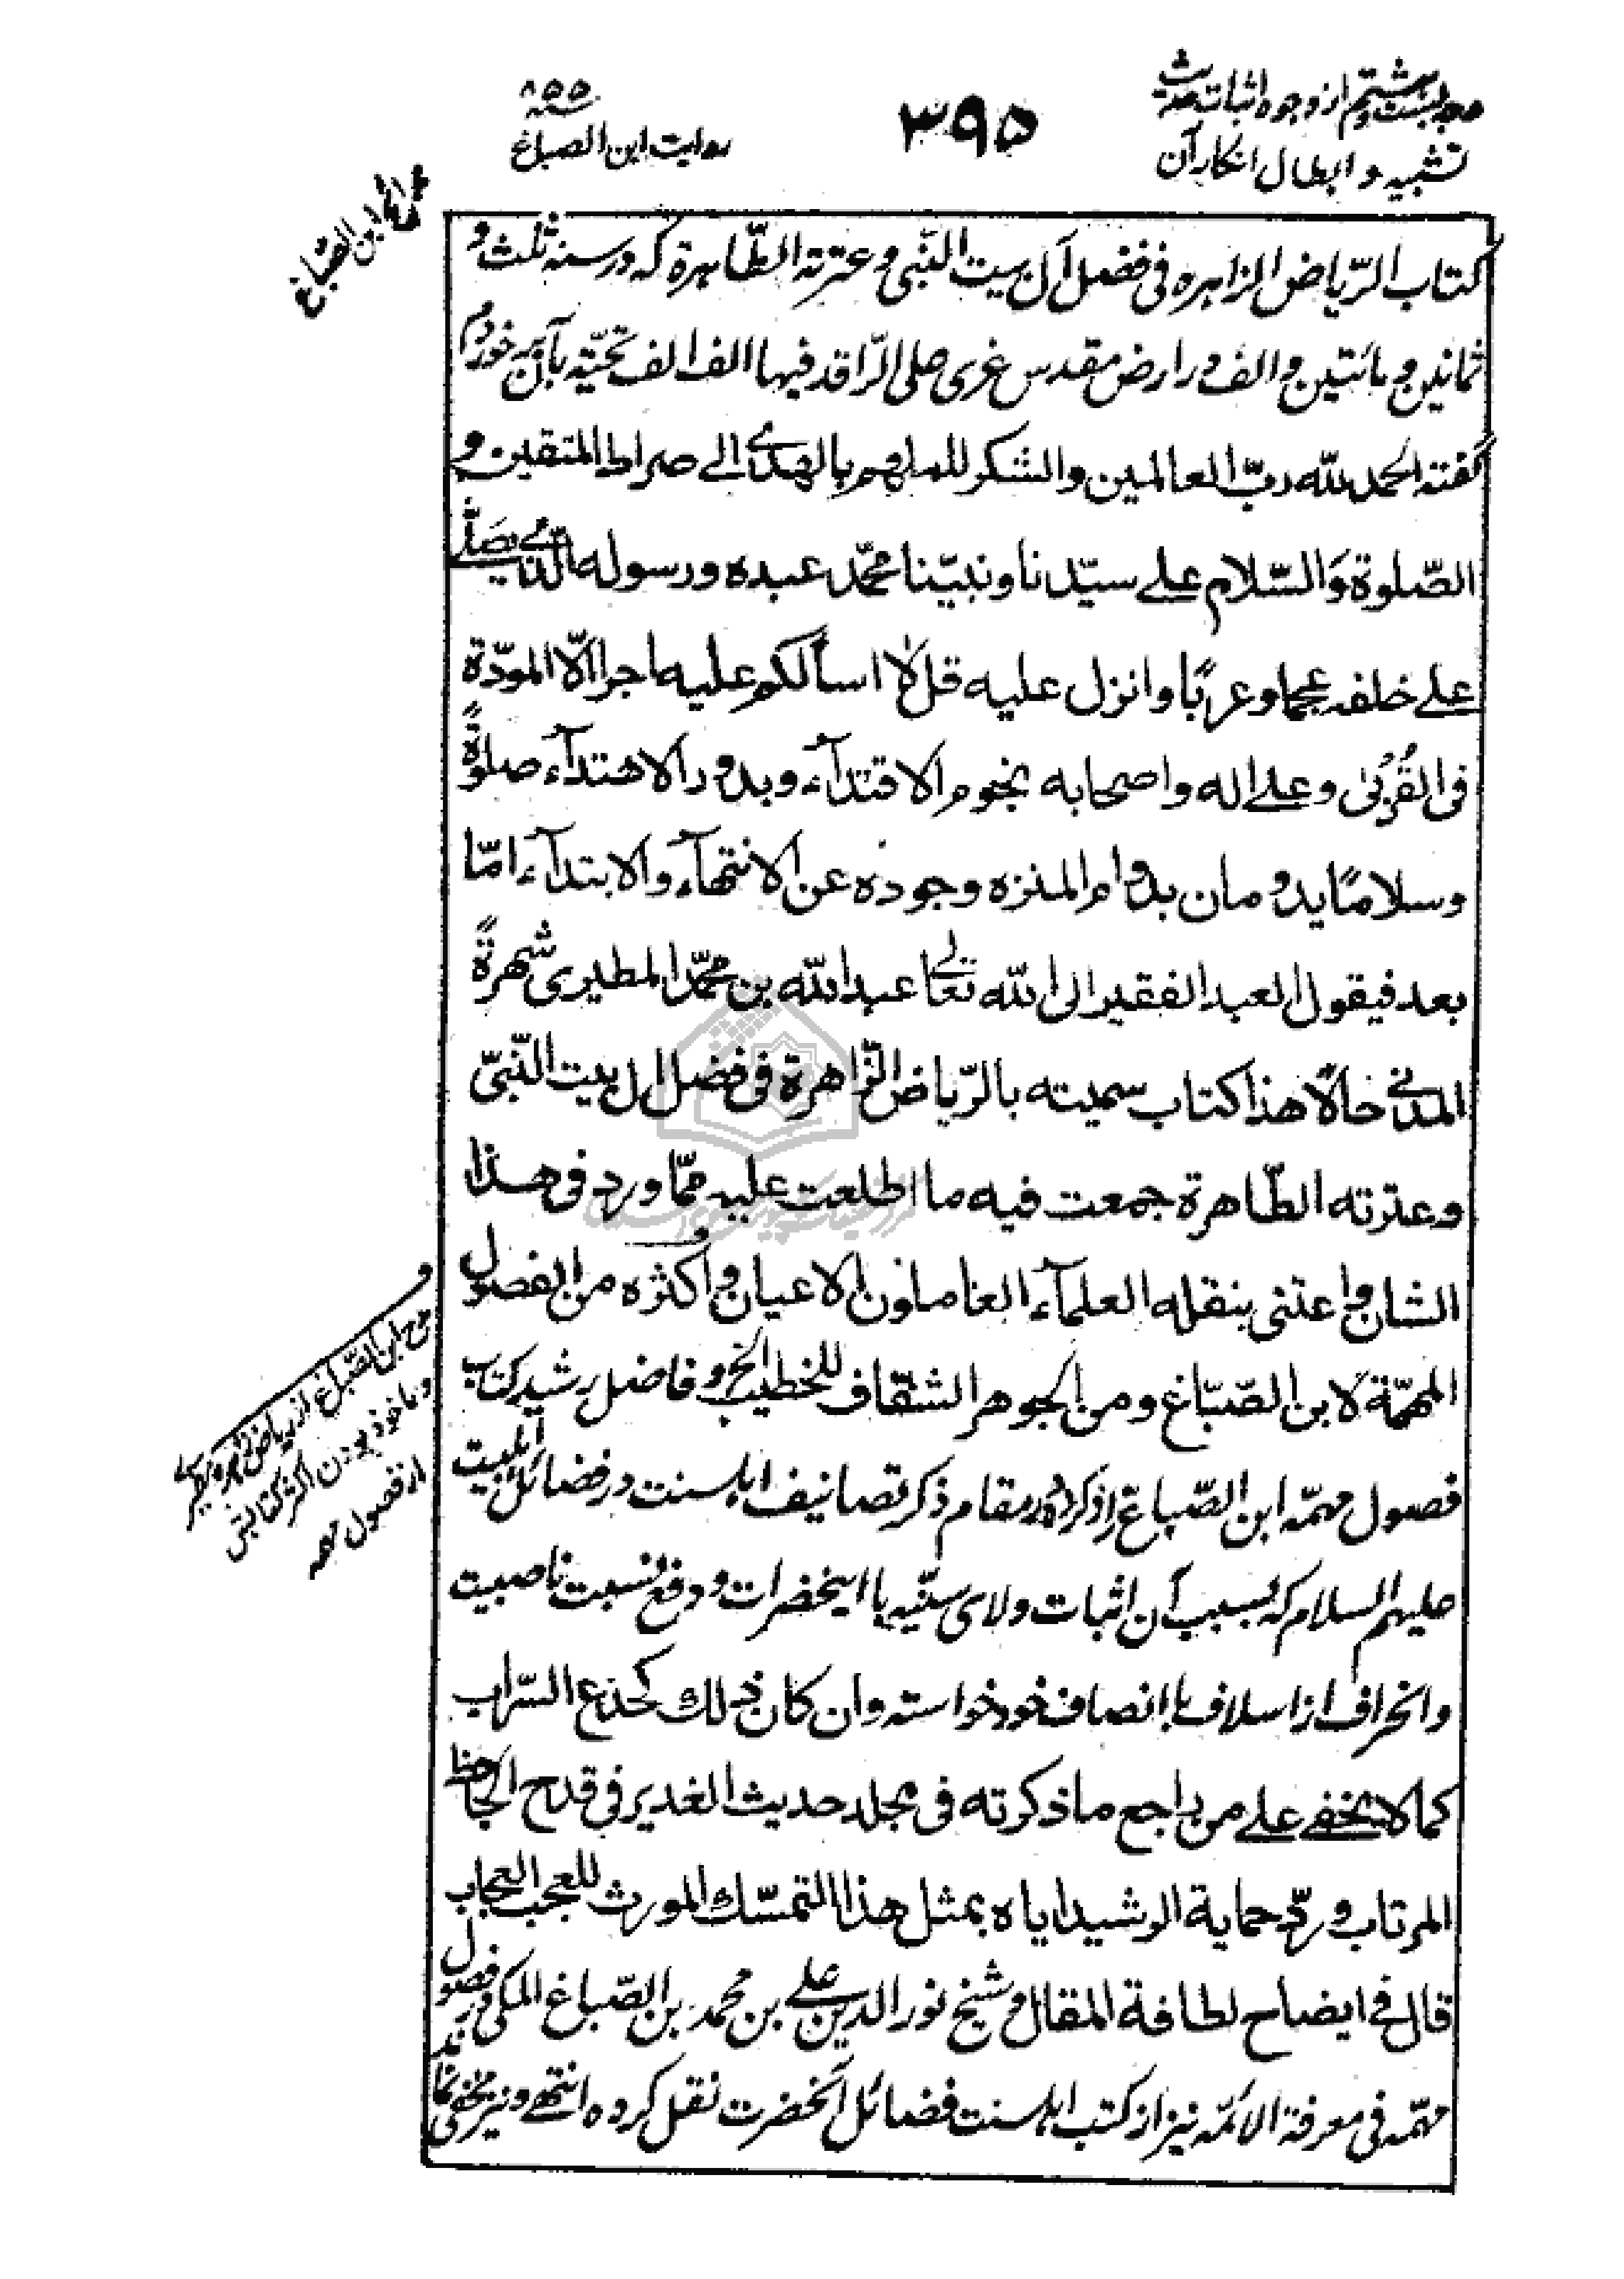 وجه بست و هشتم از وجوه اثبات حدیث
تشبیه و ابطال انکار آن
۳۹۵
سنه ۸۵۵
روایت ابن الصباغ
ابن الصباغ
کتاب الرّیاض الزاهره فی فضل آل بیت النّبی و عترته الطّاهرة که در سنه ثلث و
ثمانین و مائتین و الف در ارض مقدس غری صلی الرّاقد فیها الف الف تحیّة بآن بر خوردم
گفته الحمد لله ربّ العالمین والشکر للملهم بالهدی الی صراط المتقین و
الصّلوة وَالسّلام علی سیّدنا ونبیّنا محمّد عبده ورسوله الذی
علی خلفه عجما وعربًا وانزل علیه قل لا اسألکم علیه اجرا الّا المودّة
فی القُرْبی وعلی اله واصحابه نجوم الاقتدآء وبدور الاهتدآء صلوةً
وسلامًا یدومان بدوام المنزه وجوده عن الانتهآء والابتدآء امّا
بعد فیقول العبد الفقیر الی الله تعالی عبدالله بن محمّد المطیری شهرةً
المدنی حالًا هذا کتاب سمیته بالرّیاض الزّاهرة فی فضل ال بیت النّبیّ
وعترته الطّاهرة جمعت فیه ما اطلعت علیه ممّا ورد فی هذا
الشان واعتنی بنقله العلمآء العاملون الاعیان واکثره من الفصول
المهمّة لابن الصّبّاغ ومن الجوهر الشفّاف للخطیب الخ و فاضل رشید کتاب
فصول مهمّه ابن الصّباغ را ذکر کرده در مقام ذکر تصانیف اهلسنت در فضائل اهلبیت
علیهم السلام که بسبب آن اثبات ولای سنّیه با اینحضرات و دفع نسبت ناصبیت
و انحراف از اسلاف با انصاف خود خواسته وان کان ذلک کخدع السّراب
کما لا یخفی علی من راجع ما ذکرته فی مجلد حدیث الغدیر فی قدح الجاحظ
المرتاب وردّ حمایة الرشید ایاه بمثل هذا التمسّک المورث للعجب العجاب
قال فی ایضاح لطافة المقال و شیخ نور الدین علی بن محمد بن الصّباغ المکی در فصول
مهمّه فی معرفة الائمّه نیز از کتب اهلسنت فضائل آنحضرت نقل کرده انتهی و نیز مخفی نماند
و
مدح ابن الصّبّاغ از ریاض زاهره مطیری
و ماخوذ بودن اکثر کتابش
از فصول مهمه